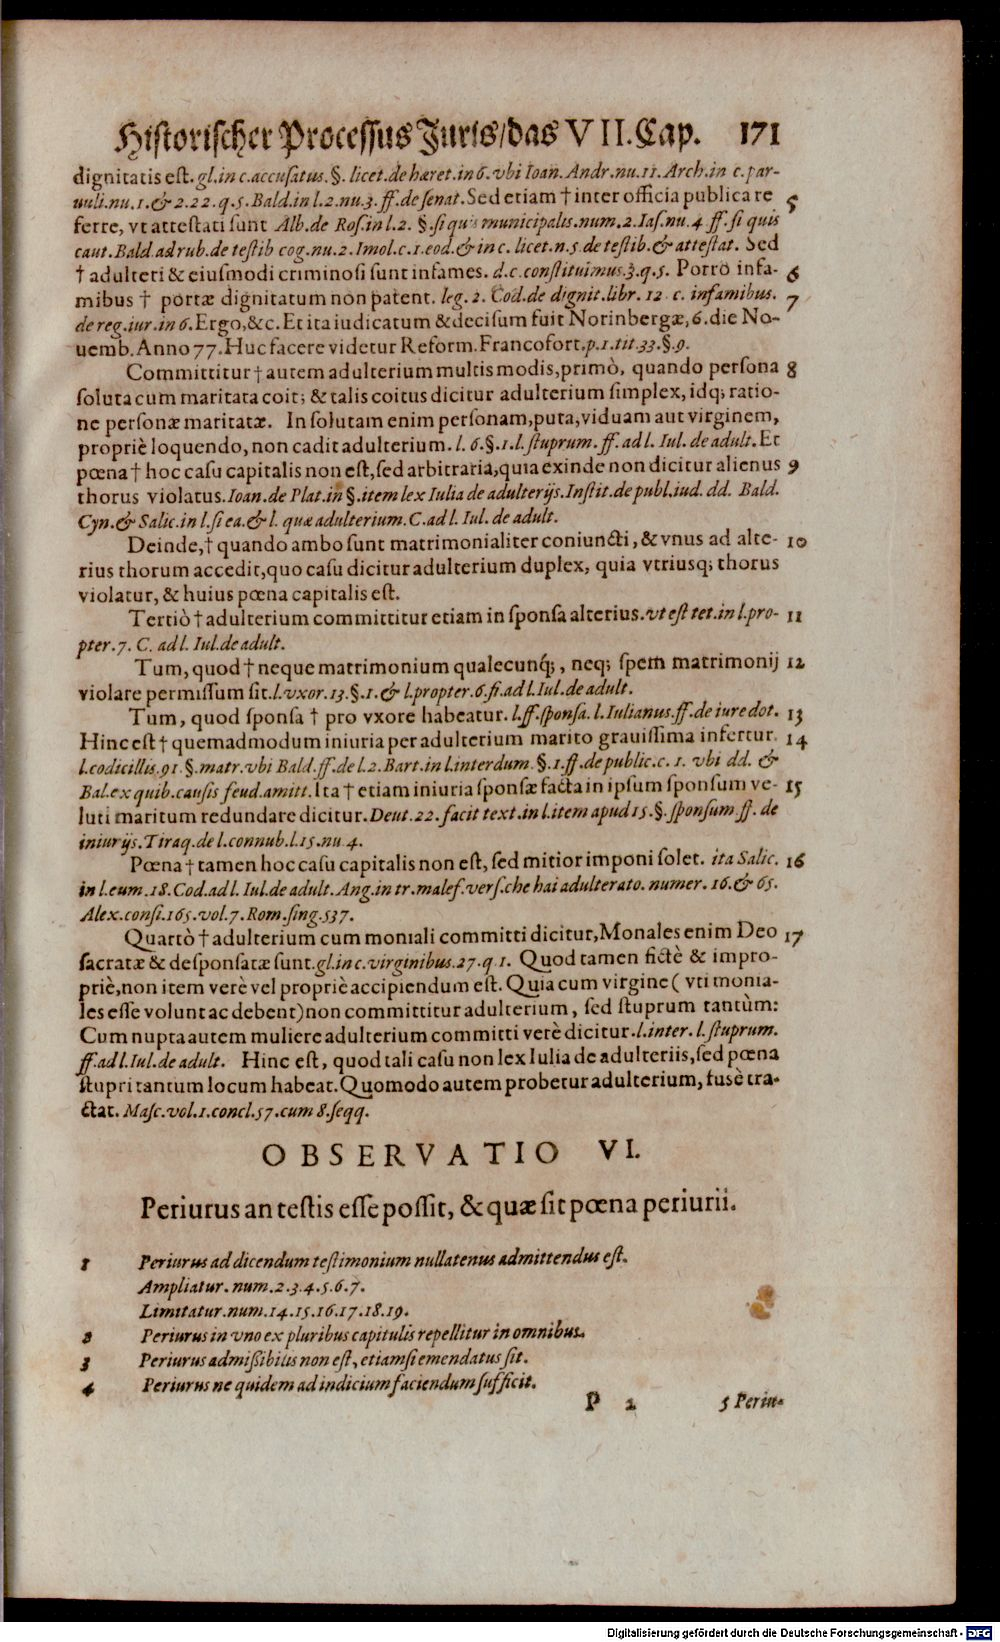 Historischer Processus Juris/das VII. Cap. 171
dignitatis est. gl. in c. accusatus. §. licet. de hæret. in 6. vbi Ioan. Andr. nu. 11. Arch. in c. par-
uuli. nu. 1. & 2. 22. q. 5. Bald. in l. 2. nu. 3. ff. de senat. Sed etiam † inter officia publica re 5
ferre, vt attestati sunt Alb. de Ros. in l. 2. §. si quis municipalis. num. 2. Ias. nu. 4 ff. si quis
caut. Bald. ad rub. de testib cog. nu. 2. Imol. c. 1. eod. & in c. licet. n. 5. de testib. & attestat. Sed
† adulteri & eiusmodi criminosi sunt infames. d. c. constituimus. 3. q. 5. Porrò infa- 6
mibus † portæ dignitatum non patent. leg. 2. Cod. de dignit. libr. 12 c. infamibus. 7
de reg. iur. in 6. Ergo, &c. Et ita iudicatum & decisum fuit Norinbergæ, 6. die No-
uemb. Anno 77. Huc facere videtur Reform. Francofort. p. 1. tit. 33. §. 9.
Committitur † autem adulterium multis modis, primò, quando persona 8
soluta cum maritata coit; & talis coitus dicitur adulterium simplex, idq; ratio-
ne personæ maritatæ. In solutam enim personam, puta, viduam aut virginem,
propriè loquendo, non cadit adulterium. l. 6. §. 1. l. stuprum. ff. ad l. Iul. de adult. Et
pœna † hoc casu capitalis non est, sed arbitraria, quia exinde non dicitur alienus 9
thorus violatus. Ioan. de Plat. in §. item lex Iulia de adulterijs. Instit. de publ. iud. dd. Bald.
Cyn. & Salic. in l. si ea. & l. quæ adulterium. C. ad l. Iul. de adult.
Deinde, † quando ambo sunt matrimonialiter coniuncti, & vnus ad alte- 10
rius thorum accedit, quo casu dicitur adulterium duplex, quia vtriusq; thorus
violatur, & huius pœna capitalis est.
Tertiò † adulterium committitur etiam in sponsa alterius. vt est tet. in l. pro- 11
pter. 7. C. ad l. Iul. de adult.
Tum, quod † neque matrimonium qualecunq;, neq; spem matrimonij 12
violare permissum sit. l. vxor. 13. §. 1. & l. propter. 6. fi. ad l. Iul. de adult.
Tum, quod sponsa † pro vxore habeatur. l. ff. sponsa. l. Iulianus. ff. de iure dot. 13
Hinc est † quemadmodum iniuria per adulterium marito grauissima infertur. 14
l. codicillis. 91. §. matr. vbi Bald. ff. de l. 2. Bart. in l. interdum. §. 1. ff. de public. c. 1. vbi dd. &
Bal. ex quib. causis feud. amitt. Ita † etiam iniuria sponsæ facta in ipsum sponsum ve- 15
luti maritum redundare dicitur. Deut. 22. facit text. in l. item apud 15. §. sponsum. ff. de
iniurijs. Tiraq. de l. connub. l. 15. nu. 4.
Pœna † tamen hoc casu capitalis non est, sed mitior imponi solet. ita Salic. 16
in l. eum. 18. Cod. ad l. Iul. de adult. Ang. in tr. malef. vers. che hai adulterato. numer. 16. & 65.
Alex. consi. 165. vol. 7. Rom. sing. 537.
Quartò † adulterium cum moniali committi dicitur, Monales enim Deo 17
sacratæ & desponsatæ sunt. gl. in c. virginibus. 27. q 1. Quod tamen fictè & impro-
priè, non item verè vel propriè accipiendum est. Quia cum virgine (vti monia-
les esse volunt ac debent) non committitur adulterium, sed stuprum tantùm:
Cum nupta autem muliere adulterium committi verè dicitur. l. inter. l. stuprum.
ff. ad l. Iul. de adult. Hinc est, quod tali casu non lex Iulia de adulteriis, sed pœna
stupri tantum locum habeat. Quomodo autem probetur adulterium, fusè tra-
ctat. Masc. vol. 1. concl. 57. cum 8. seqq.
OBSERVATIO VI.
Periurus an testis esse possit, & quæ sit pœna periurii.
1 Periurus ad dicendum testimonium nullatenus admittendus est.
Ampliatur. num. 2. 3. 4. 5. 6. 7.
Limitatur. num. 14. 15. 16. 17. 18. 19.
2 Periurus in vno ex pluribus capitulis repellitur in omnibus.
3 Periurus admißibilis non est, etiamsi emendatus sit.
4 Periurus ne quidem ad indicium faciendum sufficit.
P 2 5 Periu-
Digitalisierung gefördert durch die Deutsche Forschungsgemeinschaft - DFG